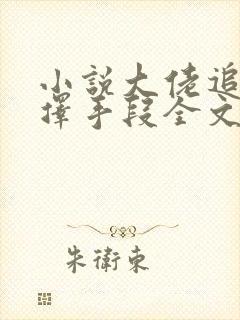 小說大佬追
擇手段全文
朱衛東